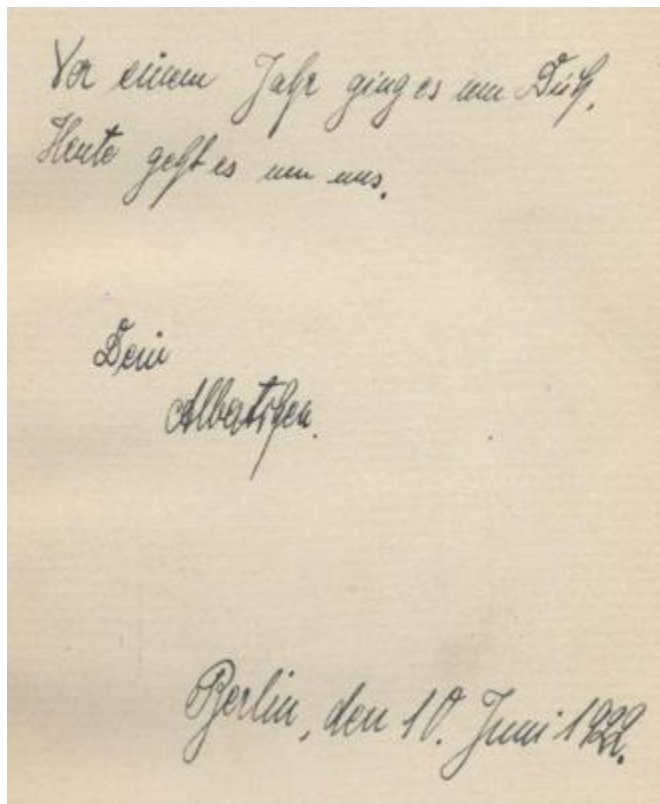 Vor einem Jahr ging es um Dich.
Heute geht es um uns.
Dein
Albertchen.
Berlin, den 10. Juni 1922.